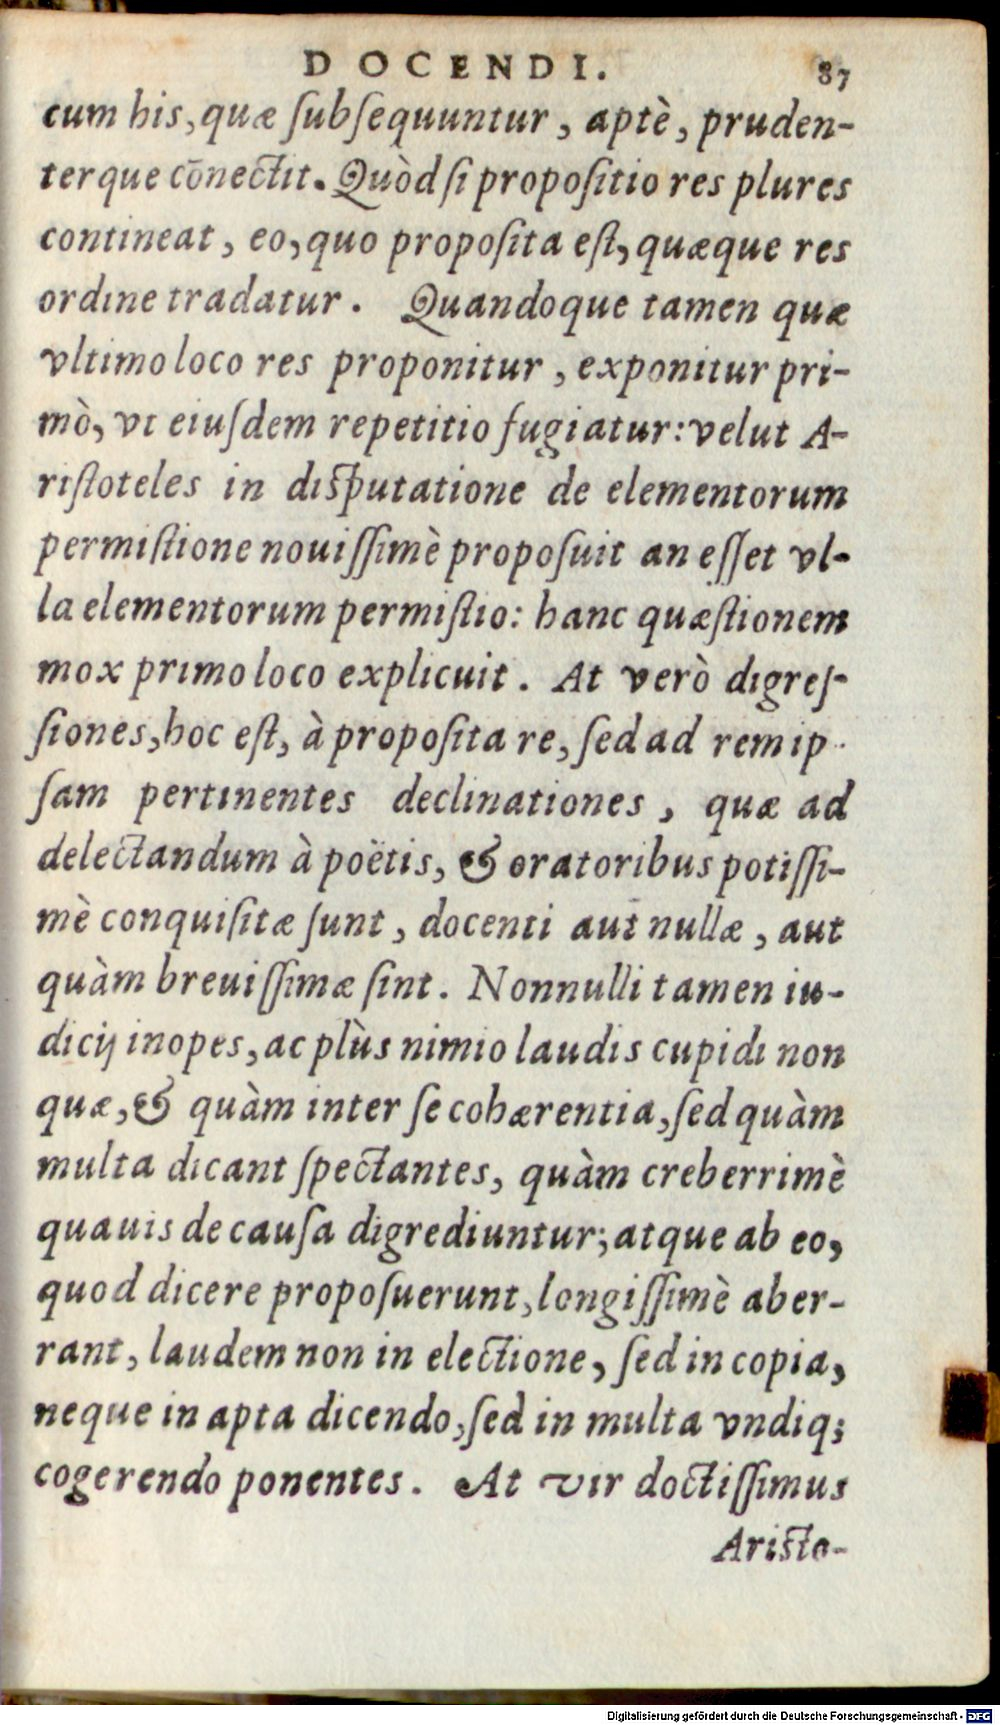 DOCENDI. 87
cum his, quæ ſubſequuntur, aptè, pruden-
terque cōnectit. Quòd ſi propoſitio res plures
contineat, eo, quo propoſita eſt, quæque res
ordine tradatur. Quandoque tamen quæ
vltimo loco res proponitur, exponitur pri-
mò, vt eiuſdem repetitio fugiatur: velut A-
riſtoteles in diſputatione de elementorum
permiſtione nouiſſimè propoſuit an eſſet vl-
la elementorum permiſtio: hanc quæſtionem
mox primo loco explicuit. At verò digreſ-
ſiones, hoc eſt, à propoſita re, ſed ad rem ip-
ſam pertinentes declinationes, quæ ad
delectandum à poëtis, & oratoribus potiſſi-
mè conquiſitæ ſunt, docenti aut nullæ, aut
quàm breuiſſimæ ſint. Nonnulli tamen iu-
dicij inopes, ac plùs nimio laudis cupidi non
quæ, & quàm inter ſe cohærentia, ſed quàm
multa dicant ſpectantes, quàm creberrimè
quauis de cauſa digrediuntur; atque ab eo,
quod dicere propoſuerunt, longiſſimè aber-
rant, laudem non in electione, ſed in copia,
neque in apta dicendo, ſed in multa vndiq;
cogerendo ponentes. At vir doctiſſimus
Ariſto-
Digitalisierung gefördert durch die Deutsche Forschungsgemeinschaft - DFG